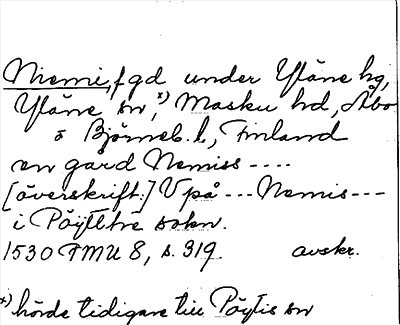 Niemi, fgd under Yläne kg,
Yläne sn,ˣ⁾ Masku hd, Åbo
o Björneb. l., Finland
en gard Nemiss ----
[överskrift:] Vpå --- Nemis ---
i Pöÿthe sokn.
1530 FMU 8, s. 319. avskr.
x) hörde tidigare till Pöytis sn